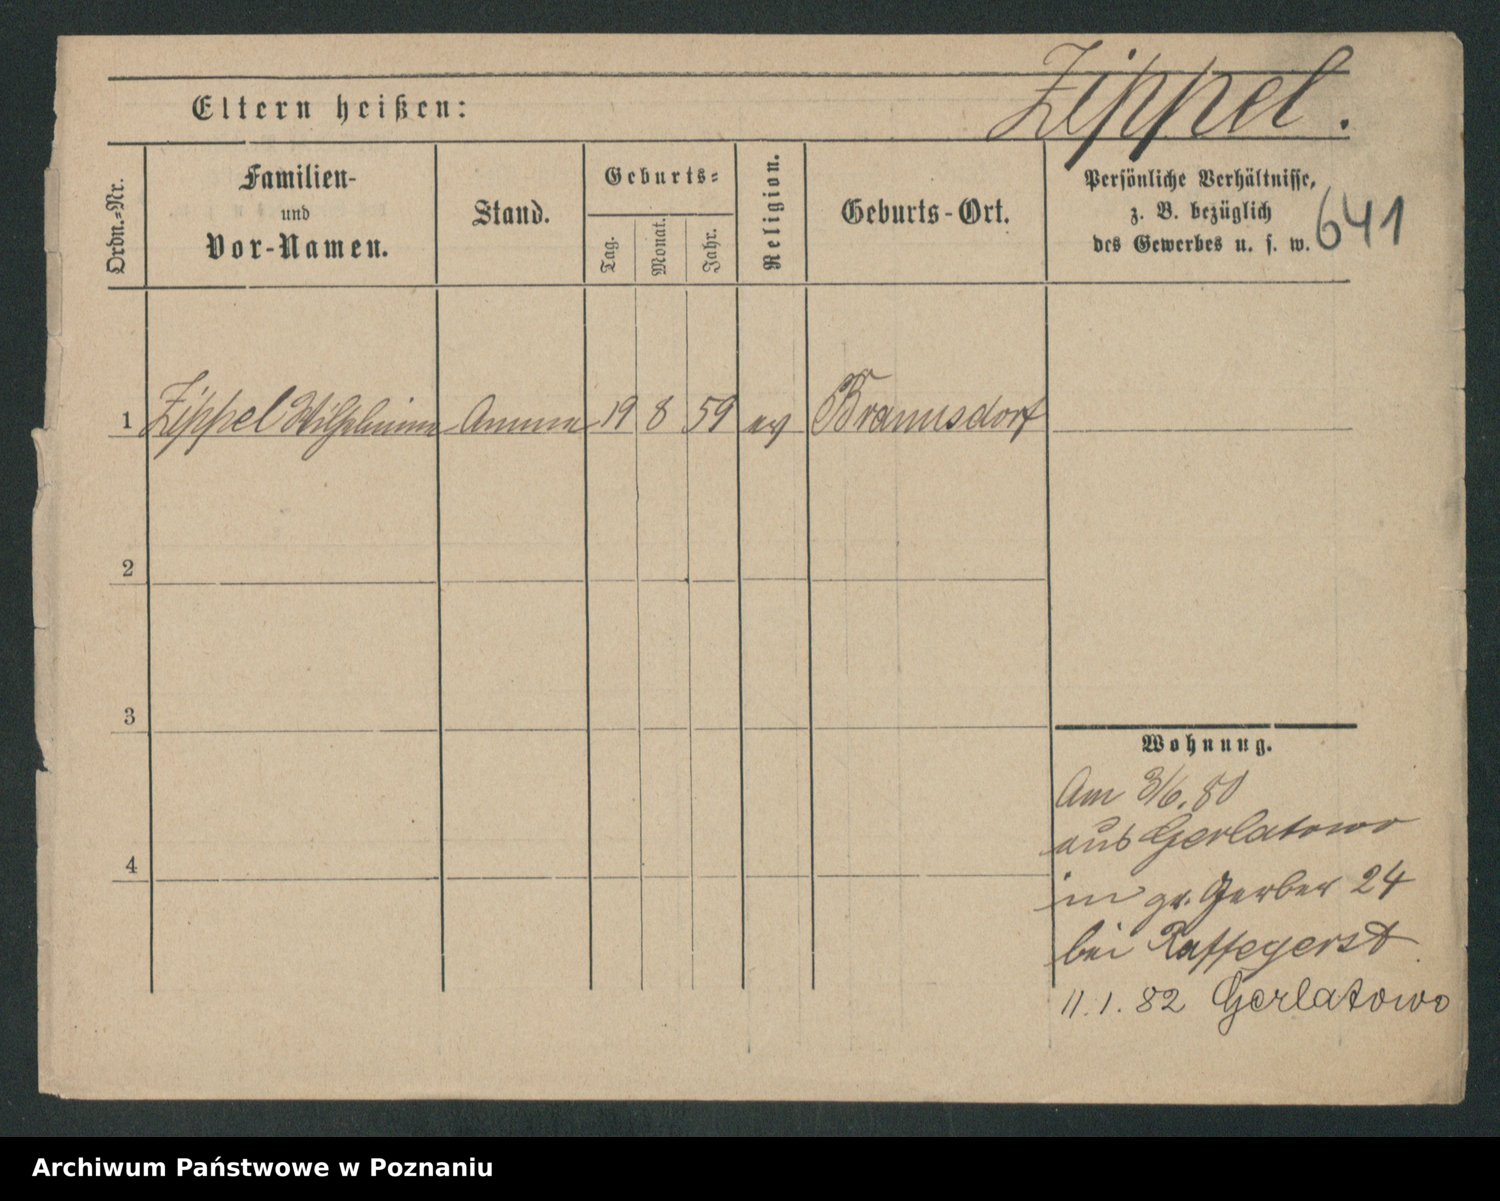 Zippel.
Eltern heißen:
641
Ordn.-Nr.
Familien-
und
Vor-Namen.
Stand.
Geburts-
Tag.
Monat.
Jahr.
Religion.
Geburts-Ort.
Persönliche Verhältnisse,
z. B. bezüglich
des Gewerbes u. s. w.
1 Zippel Wilhelmine Amme 19 8 59 ev Bramsdorf
2
3
4
Wohnung.
Am 3/6. 80
aus Gerlatowo
in gr. Gerber 24
bei
11. 1. 82 Gerlatowo
Archiwum Państwowe w Poznaniu